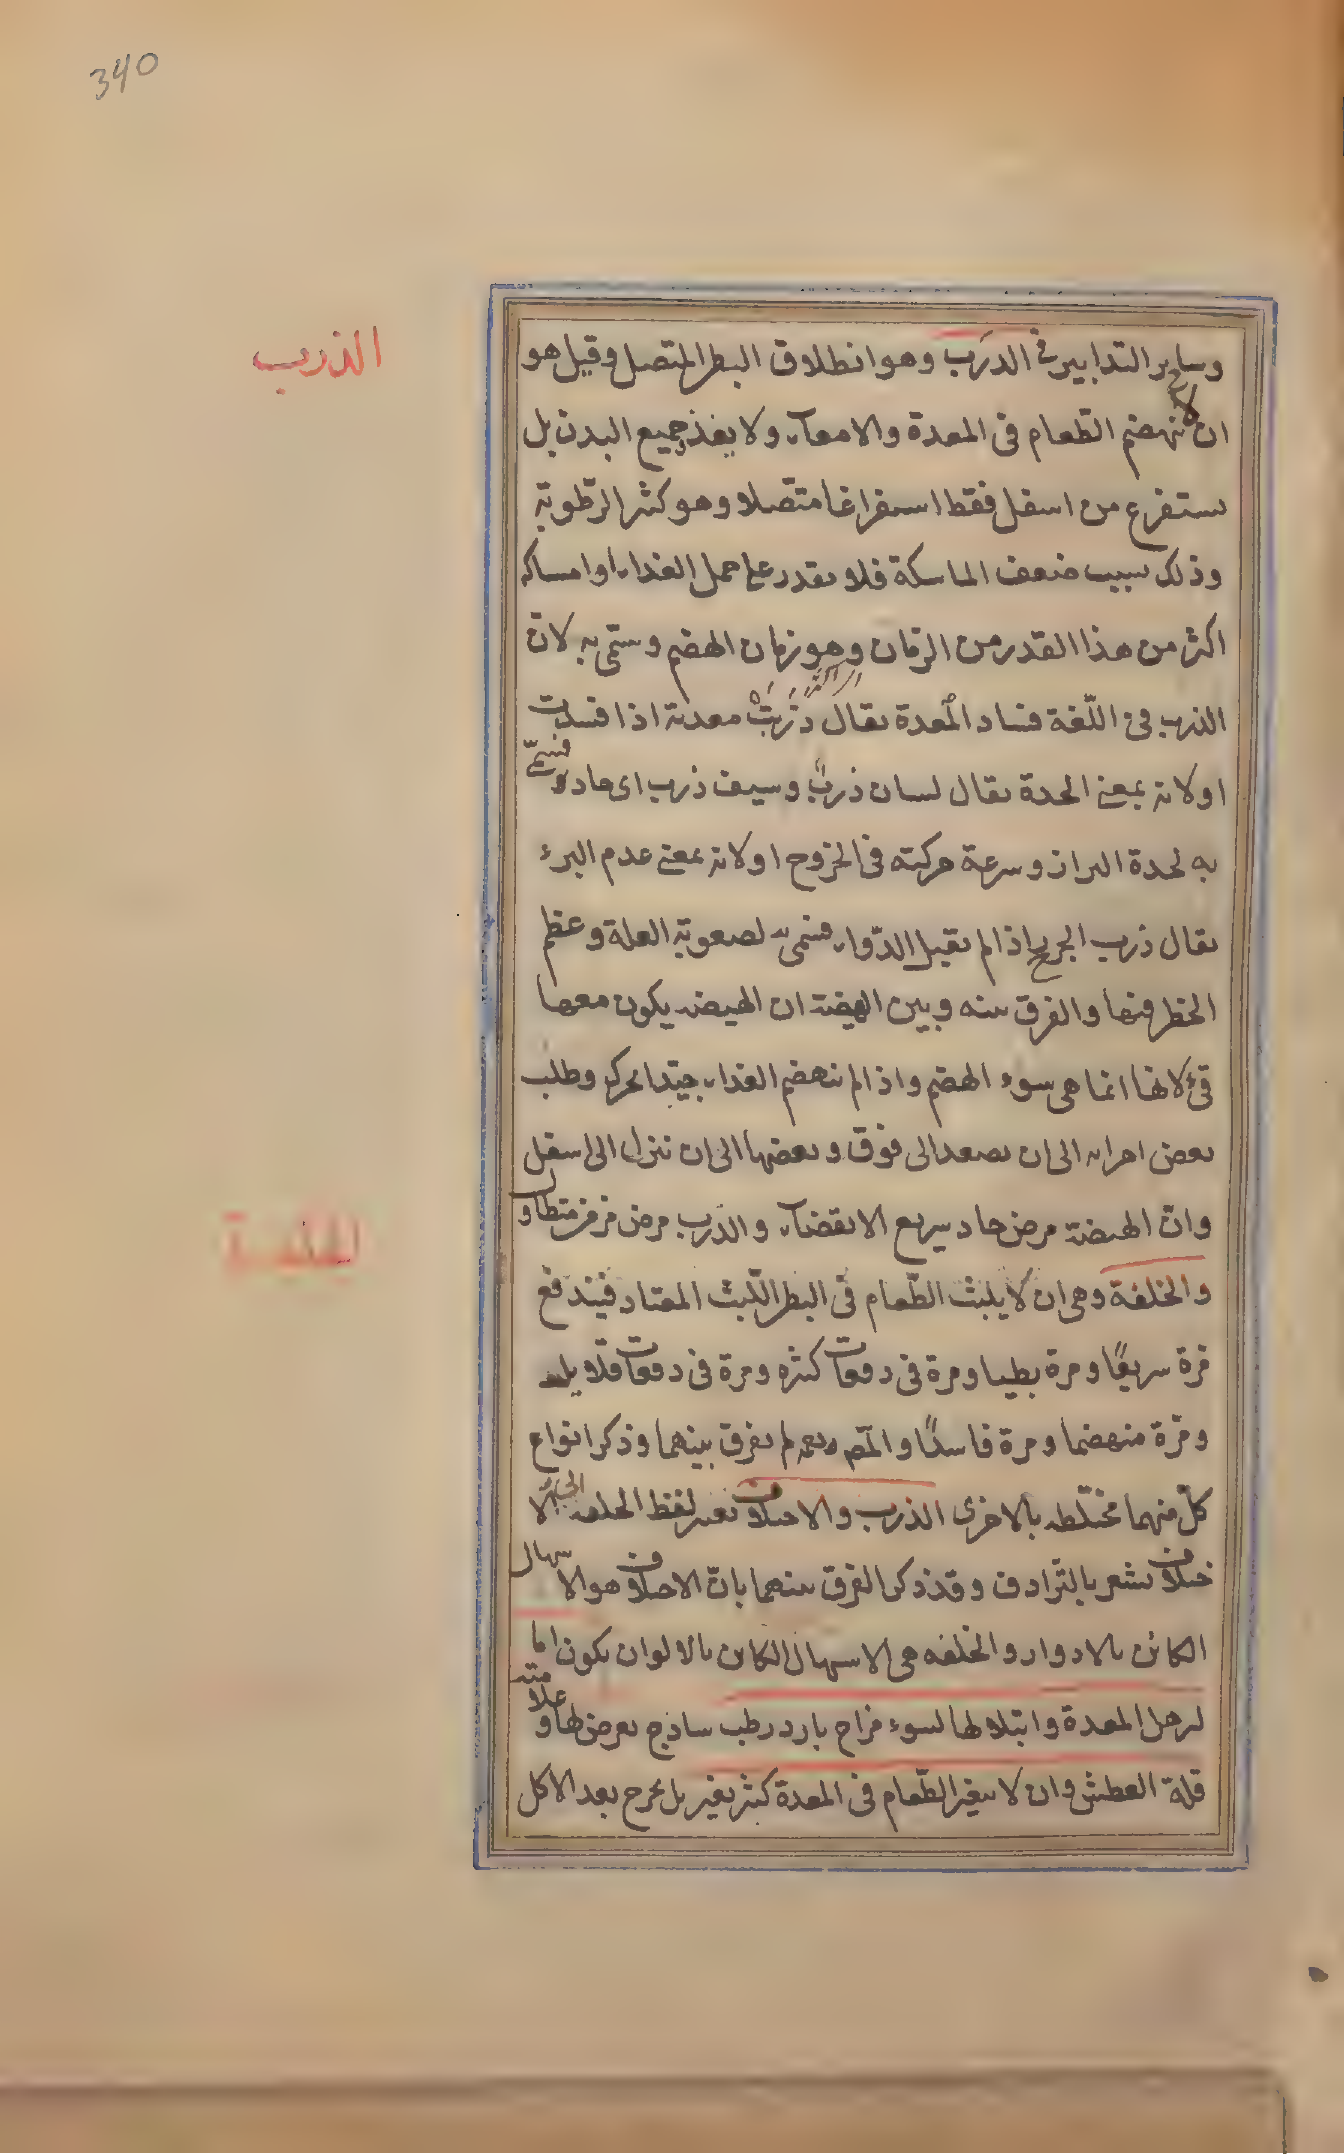 340
الذرب
وساير التدابير في الذرب وهو انطلاق البطن المتصل وقيل هو
ان لا ينهضم الطعام فى المعدة والامعاء ولا يغذ جميع البدن بل
يستفرغ من اسفل فقط استفراغا متصلا وهو كثير الرطوبة
وذلك بسبب ضعف الماسكة فلا يقدر على حمل الغذاء او امساكه
اكثر من هذا القدر من الزمان وهو زمان الهضم وسمى به لان
الذرب فى اللغة فساد المعدة يقال ذَرَبَتْ معدته اذا فسدت
اولانه بمعنى الحدة يقال لسان ذربٌ وسيف ذرب اى حاد فسمى
به لحدة البراز وسرعة حركته فى الخروج اولانه بمعنى عدم البرء
يقال ذرب الجرح اذا لم يقبل الدواء فسمى به لصعوبة العلة وعظم
الخطر فيها والفرق بينه وبين الهيضة ان الهيضه يكون معها
قئ لانها انما هى سوء الهضم واذا لم ينهضم الغذاء جيدا تحرك وطلب
بعض اجزائه الى ان يصعد الى فوق وبعضها الى ان تنزل الى اسفل
وان الهيضة مرض حاد سريع الانقضاء والذرب مرض مزمن متطاول
والخلفة وهى ان لا يلبث الطعام فى البطن اللبث المعتاد فيندفع
مرة سريعًا ومرة بطيا ومرة فى دفعات كثيره ومرة فى دفعات قلايل
ومرة منهضما ومرة فاسدًا والمص لم يفرق بينهما وذكر انواع
كل منهما مختلطه بالاخرى الذرب والاختلاف تغير لفظ الخلفه الى الا
ختلاف يشعر بالترادف وقد ذكر الفرق بينهما بان الاختلاف هو الاسهال
الكائن بالادوار والخلفه هى الاسهال الكاين بالالوان يكون اما
لزهل المعدة وابتلالها لسوء مزاج بارد رطب ساذج يعرض لها وعلامته
قلة العطش وان لا يتغير الطعام فى المعدة كثير تغير بل يخرج بعد الاكل